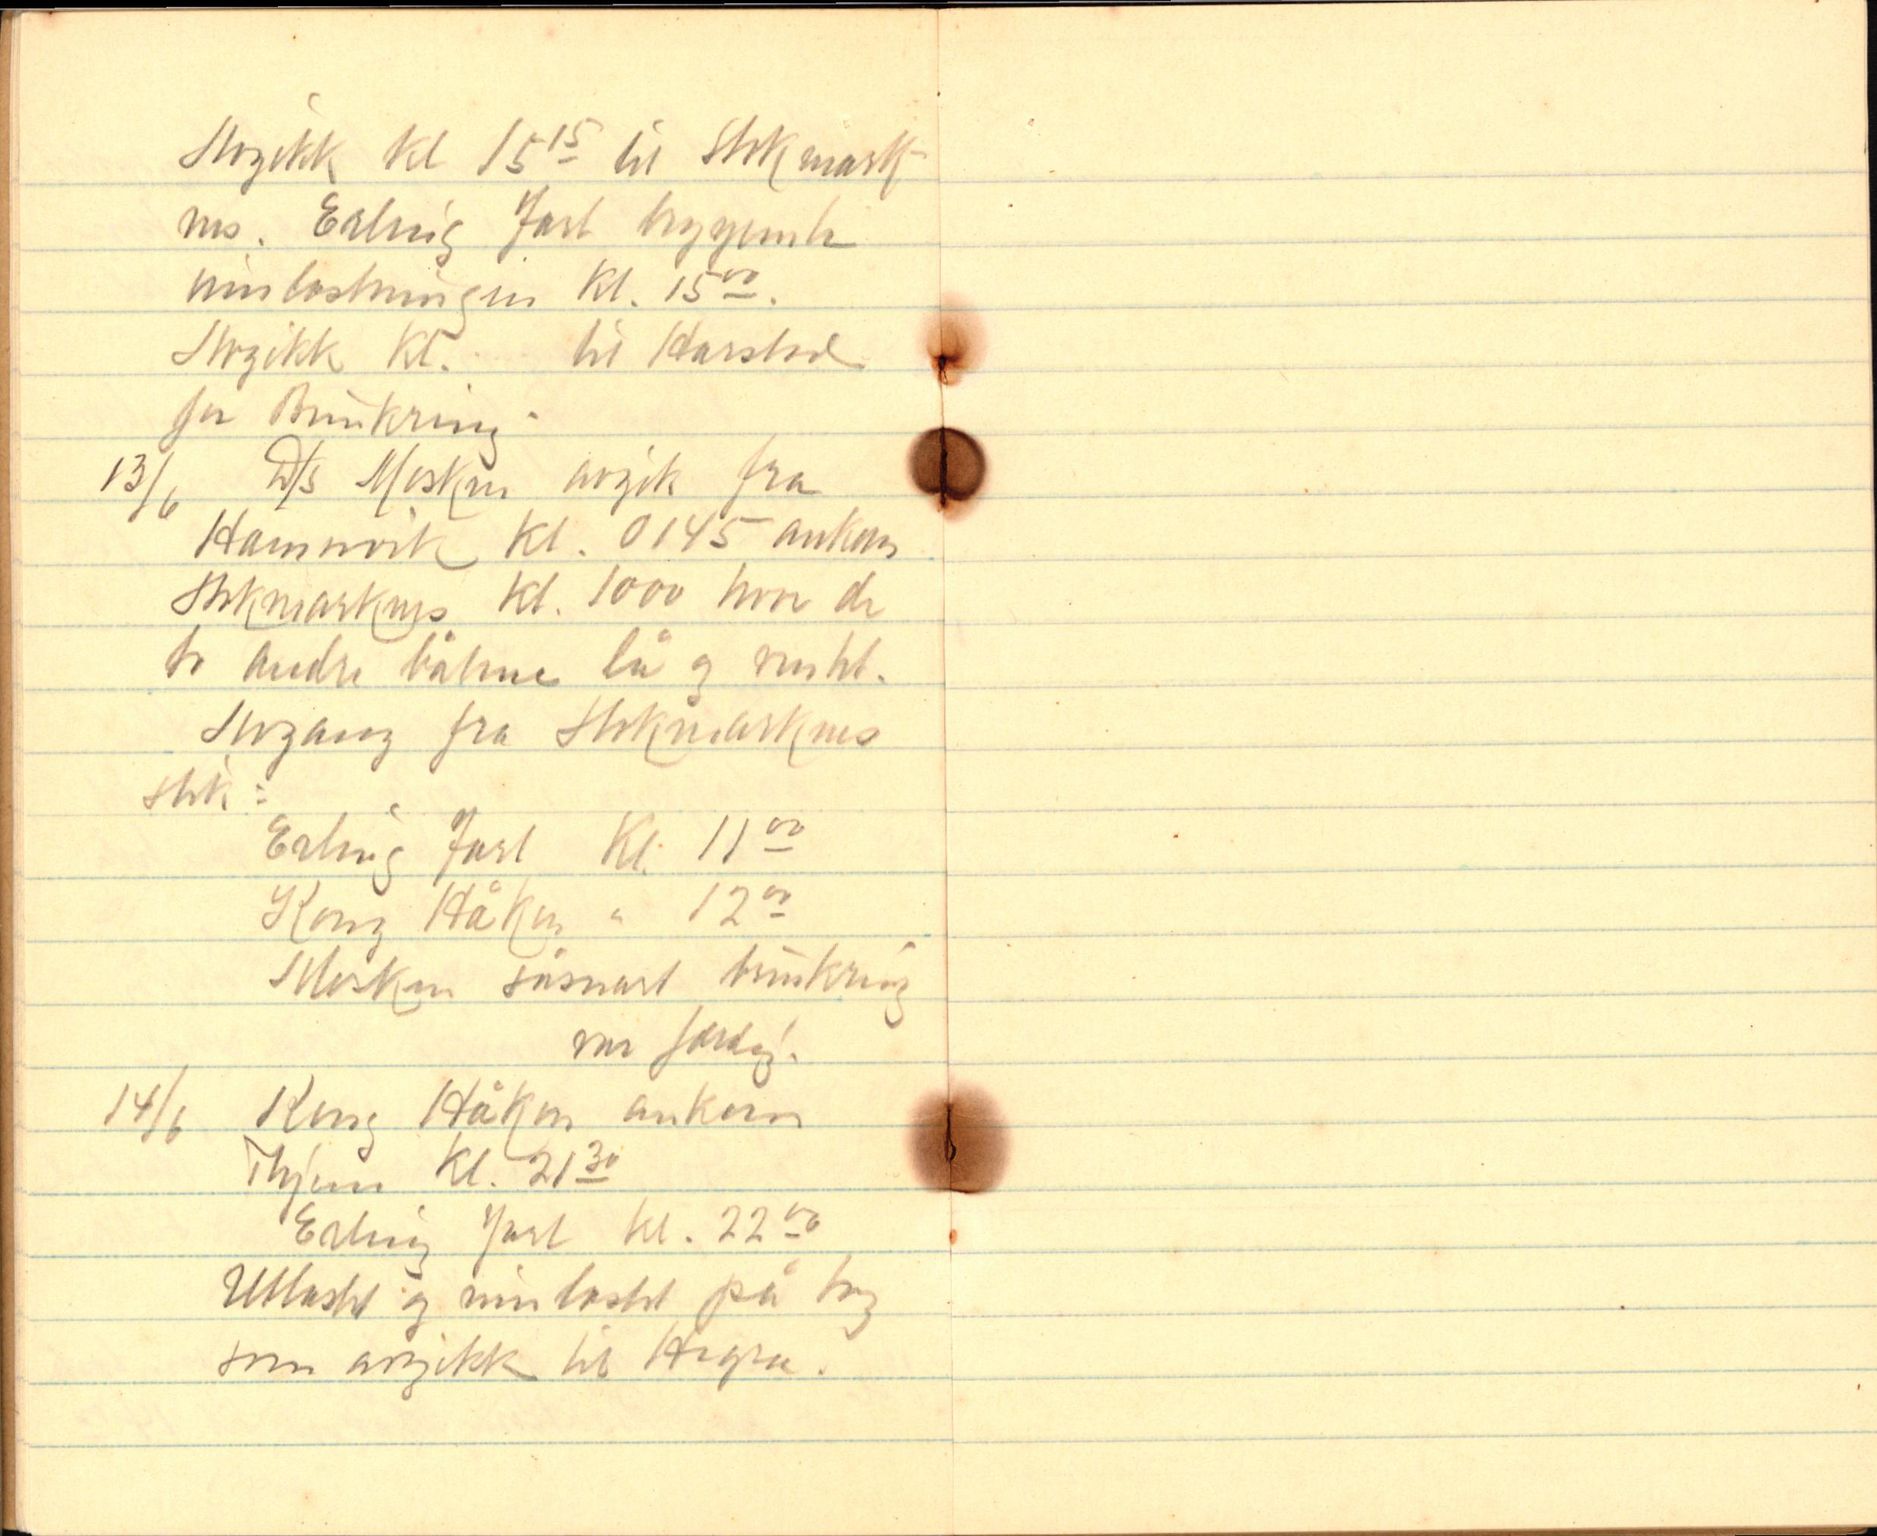 Avgikk kl 15 15 til Stokmark-
nes. Erling Jarl begynnte
innlastningen kl. 15 00.
Avgikk kl. til Harstad
for Bunkring.
13/6 D/S Mosken avgik fra
Hamnvik kl. 0145 ankom
Stokmarknes kl. 1000 hvor de
to andre båtene lå og ventet.
Avgang fra Stokmarknes
stik:
Erling Jarl Kl. 11 00
Kong Håkon " 12 00
Mosken såsnart bunkring
var færdig.
14/6 Kong Håkon ankom
kl. 21 30
Erling Jarl kl. 22 00
Utlastet og innlastet på tog
som avgikk til Hegra.